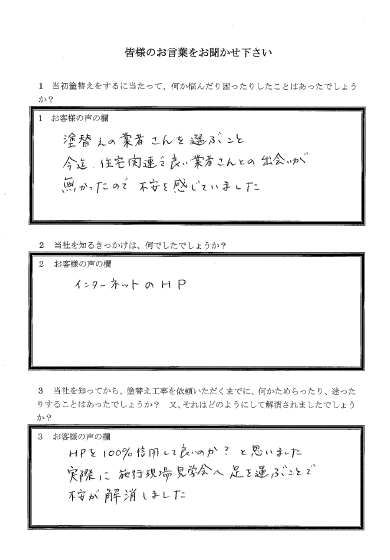 皆様のお言葉をお聞かせ下さい
1 当初塗替えをするに当たって、何か悩んだり困ったりしたことはあったでしょう
か？
1 お客様の声の欄
塗替えの業者さんを選ぶこと
今迄、住宅関連で良い業者さんとの出会いが
無かったので 不安を感じていました
2 当社を知るきっかけは、何でしたでしょうか？
2 お客様の声の欄
インターネットのHP
3 当社を知ってから、塗替え工事を依頼いただくまでに、何かためらったり、迷った
りすることはあったでしょうか？ 又、それはどのようにして解消されましたでしょう
か？
3 お客様の声の欄
HPを100%信用して良いのか？と思いました
実際に施行現場見学会へ足を運ぶことで
不安が解消しました